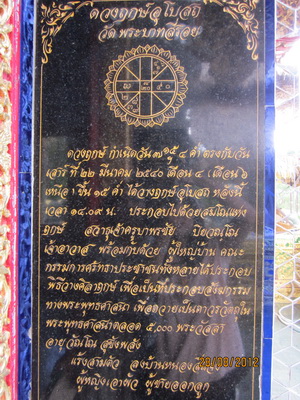 ดวงฤกษ์อุโบสถ
วัดพระบาทสี่รอย
ดวงฤกษ์ กำเนิดวัน ๗ ๑๕ ๔ ค่ำ ตรงกับวัน
เสาร์ ที่ ๒๒ มีนาคม ๒๕๔๐ เดือน ๔ (เดือน ๖
เหนือ) ขึ้น ๑๕ ค่ำ ได้วางฤกษ์อุโบสถ หลังนี้
เวลา ๑๔.๐๙ น. ประกอบไปด้วยสมโณแห่ง
ฤกษ์ สาธุเจ้าครูบาพรชัย ปิยวณฺโณ
เจ้าอาวาส พร้อมกับด้วย ผู้ใหญ่บ้าน คณะ
กรรมการศรัทธาประชาชนทั้งหลายได้ประกอบ
พิธีวางศิลาฤกษ์ เพื่อเป็นที่ประกอบสังฆกรรม
ทางพระพุทธศาสนา เพื่อถวายเป็นถาวรวัตถุใน
พระพุทธศาสนาตลอด ๕,๐๐๐ พระวัสสา
อายุ วัณโณ สุขังพลัง
แรงสามตัว ลงบ้านหนอง
ผู้หญิงเอาผัว ผู้ชายออกลูก
28/08/2012